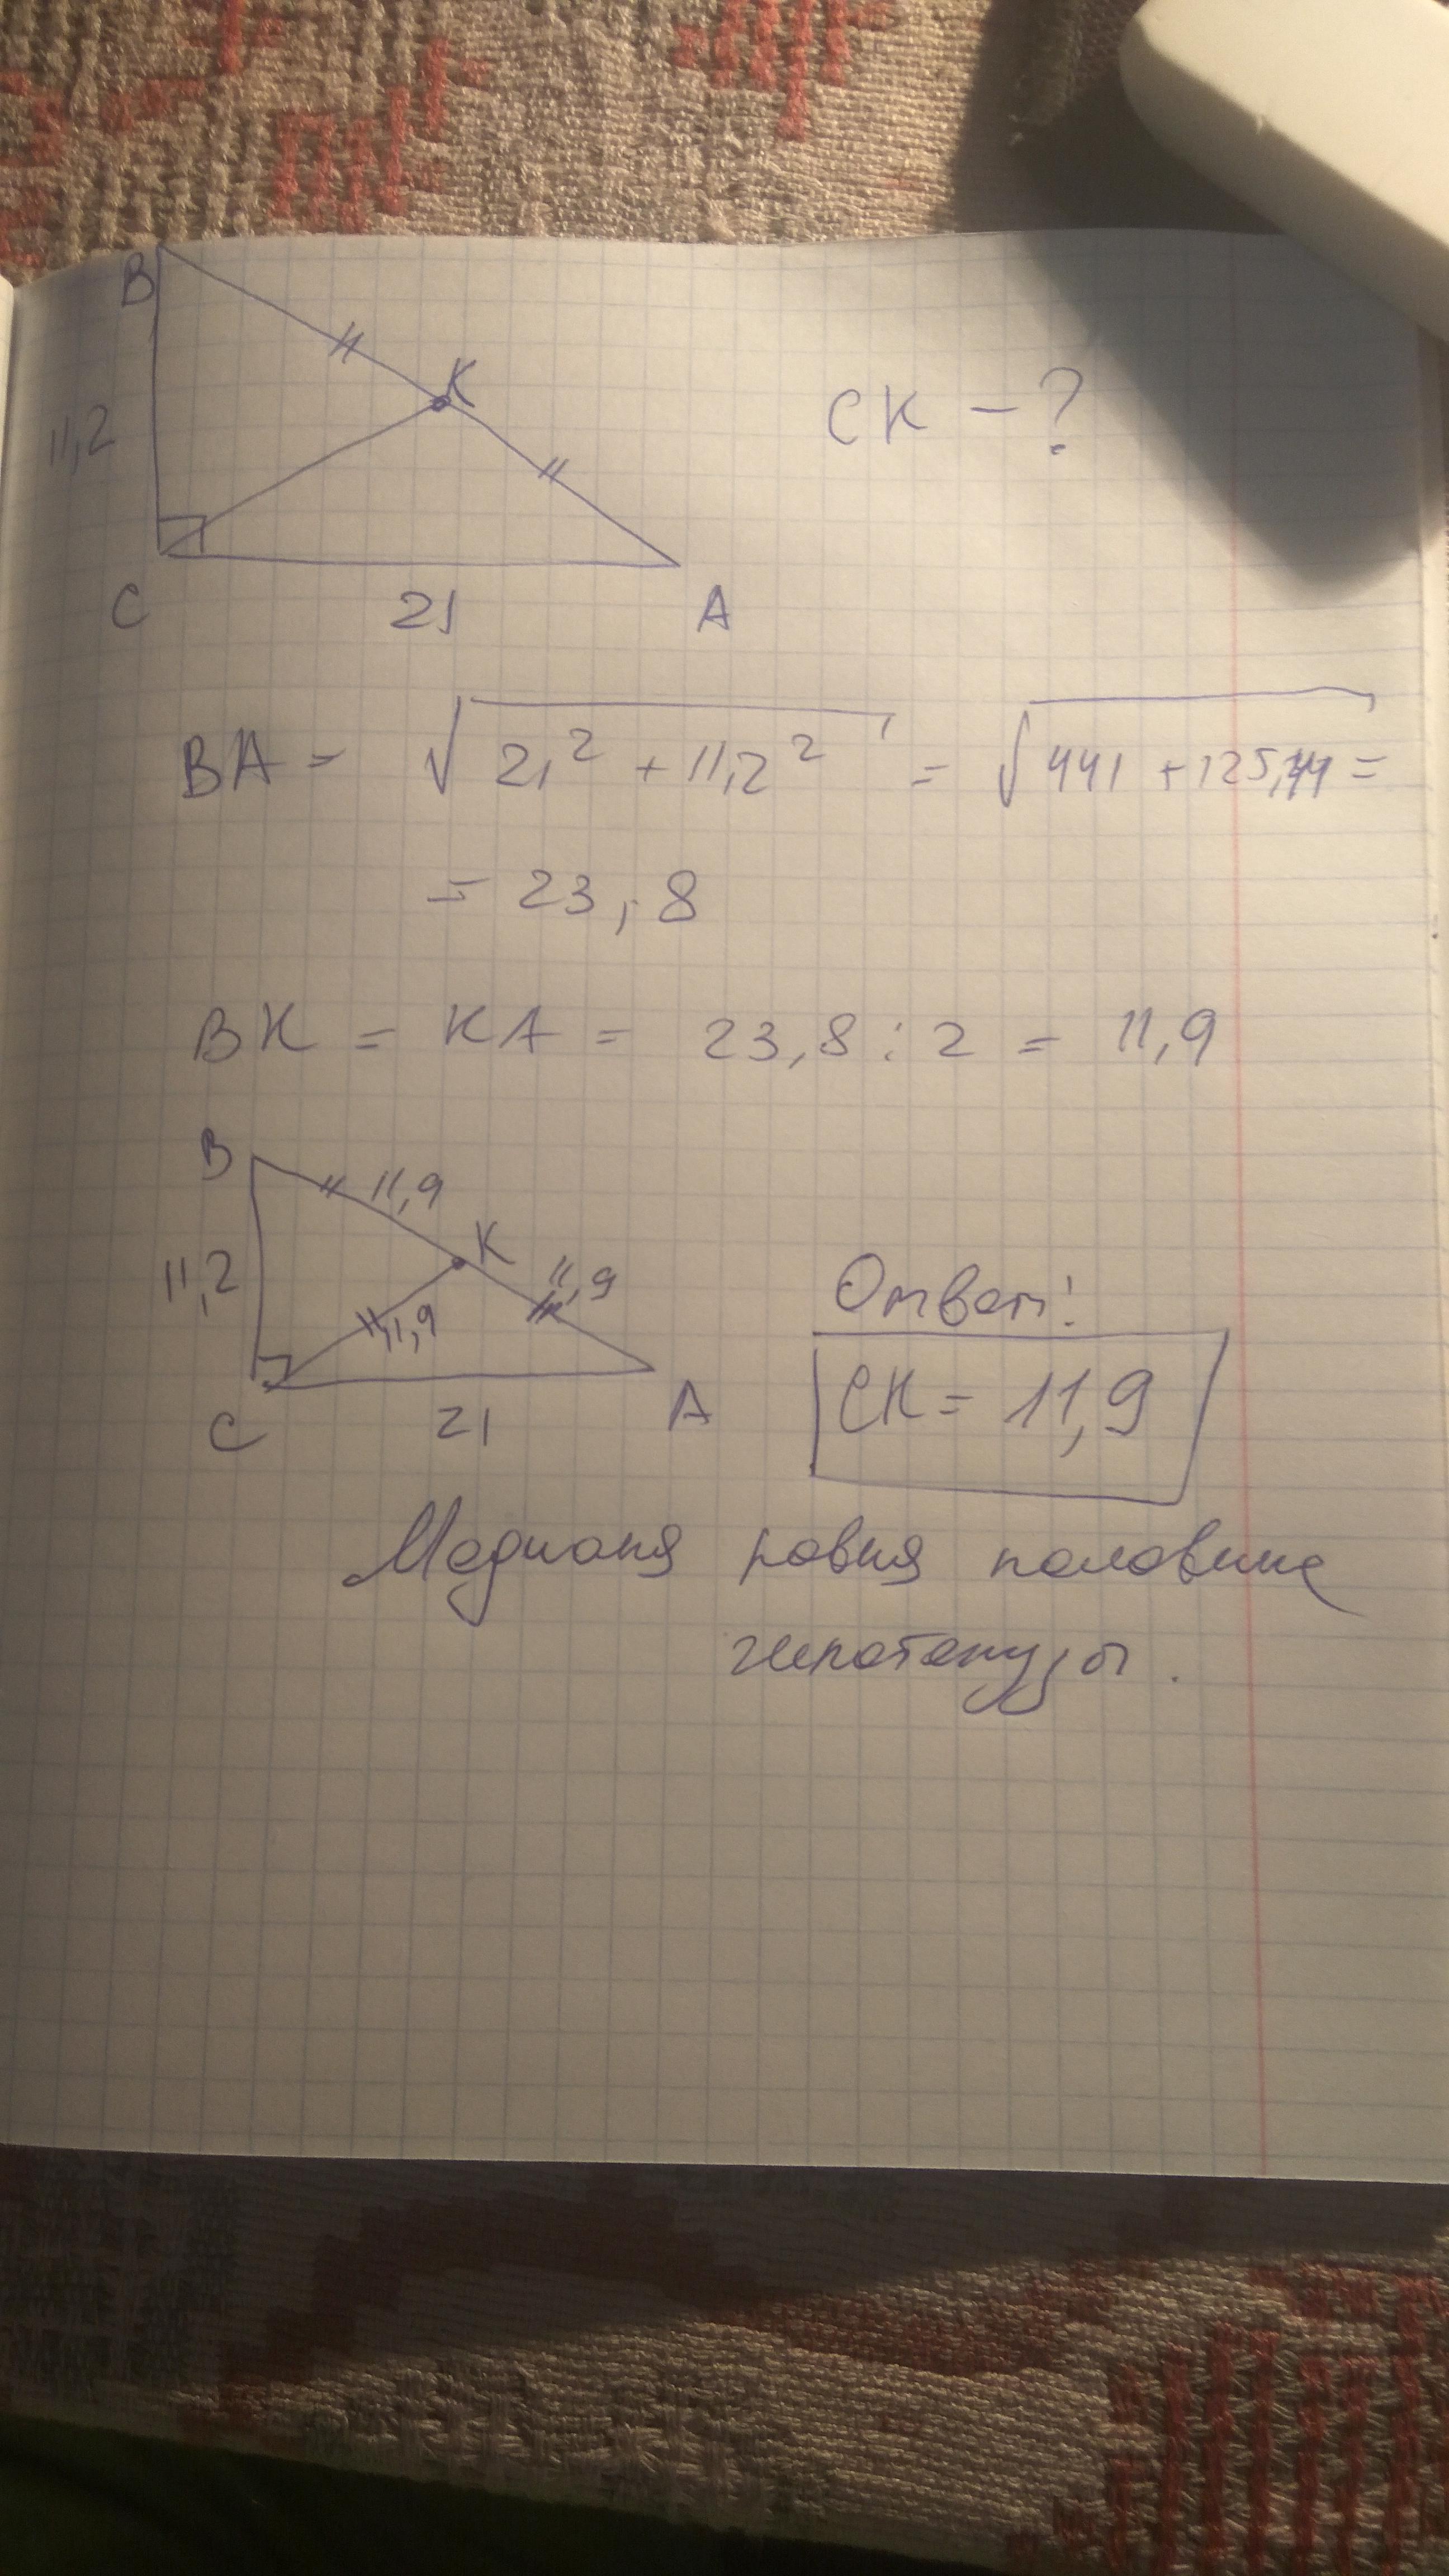 B
K
11,2
CK - ?
C
21
A
BA = √21² + 11,2² = √441 + 125,44 =
= 23,8
BK = KA = 23,8 : 2 = 11,9
B
11,9
K
11,2
11,9
11,9
C
21
A
Ответ:
CK = 11,9
Медиана равна половине
гипотенузы.